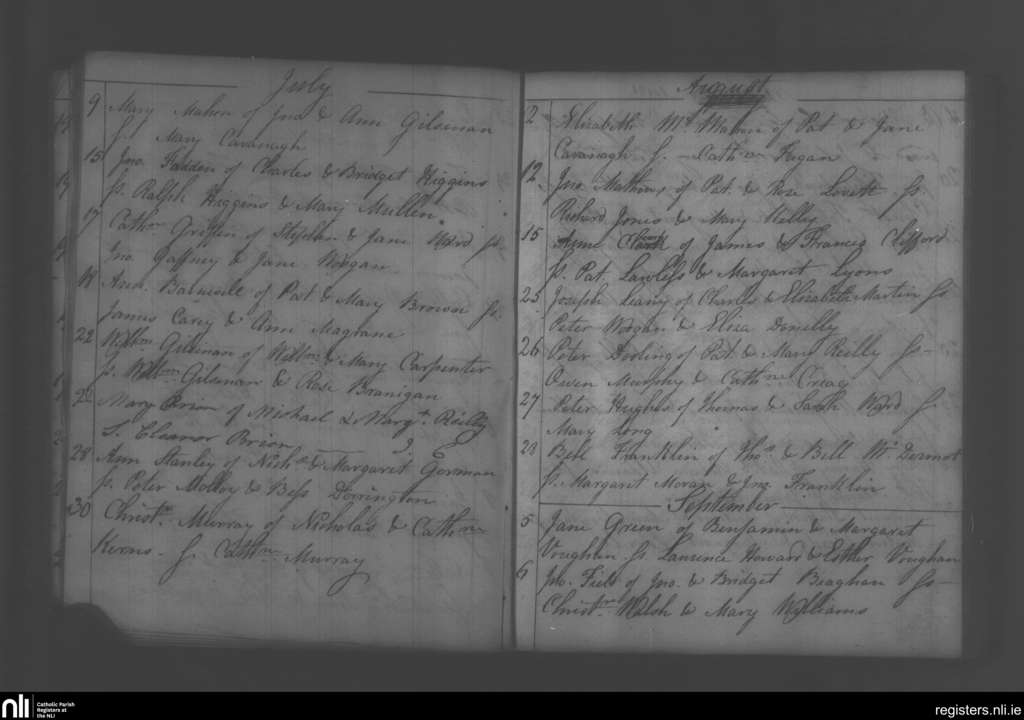 July
9 Mary Mahon of Jno & Ann Gilsenan
S. Mary Cavanagh
15 Jno. Fadden of Charles & Bridget Higgins
Ss. Ralph Higgins & Mary Mullen.
17 Cathn Griffin of Stephen & Jane Ward Ss.
Jno. Gaffney & Jane Morgan
18 Barnwell of Pat & Mary Brown Ss.
James Carey & Ann Magrane
22 Willm Gilsenan of Willm & Mary Carpenter
Ss. Willm Gilsenan & Rose Branigan
Mary Brion of Michael & Margt Reilly
S. Eleanor Brion
28 Ann Stanley of Nichs & Margaret Gorman
Ss. Peter Molloy & Bess Dorrington
30 Christr. Murray of Nicholas & Cathne
Kerns. S. Cathne Murray
August
2 Elizabeth Mc Mahon of Pat & Jane
Cavanagh S. Cathn Fegan
12 Jno. Mathews of Pat. & Rose Levett Ss.
Richard Jones & Mary Kelly
15 Anne Clark of James & Frances Clifford
Ss. Pat. Lawless & Margaret Lyons
25 Joseph Leany of Charles & Elizabeth Martin Ss
Peter Morgan & Eliza Donelly
26 Peter Dorling of Pat & Mary Reilly Ss
Owen Murphy & Cathne Creag
27 Peter Hughes of Thomas & Sarah Ward S
Mary Long
28 Bell Franklin of Thos & Bell Mc Dermot
Ss. Margaret Moran & Jno. Franklin
September
5 Jane Green of Benjamin & Margaret
Voughan Ss Laurence Howard & Esther Voughan
6 Jno. Field of Jno. & Bridget Beaghan Ss
Christr Walsh & Mary Williams
nli Catholic Parish
Registers at
the NLI
registers.nli.ie